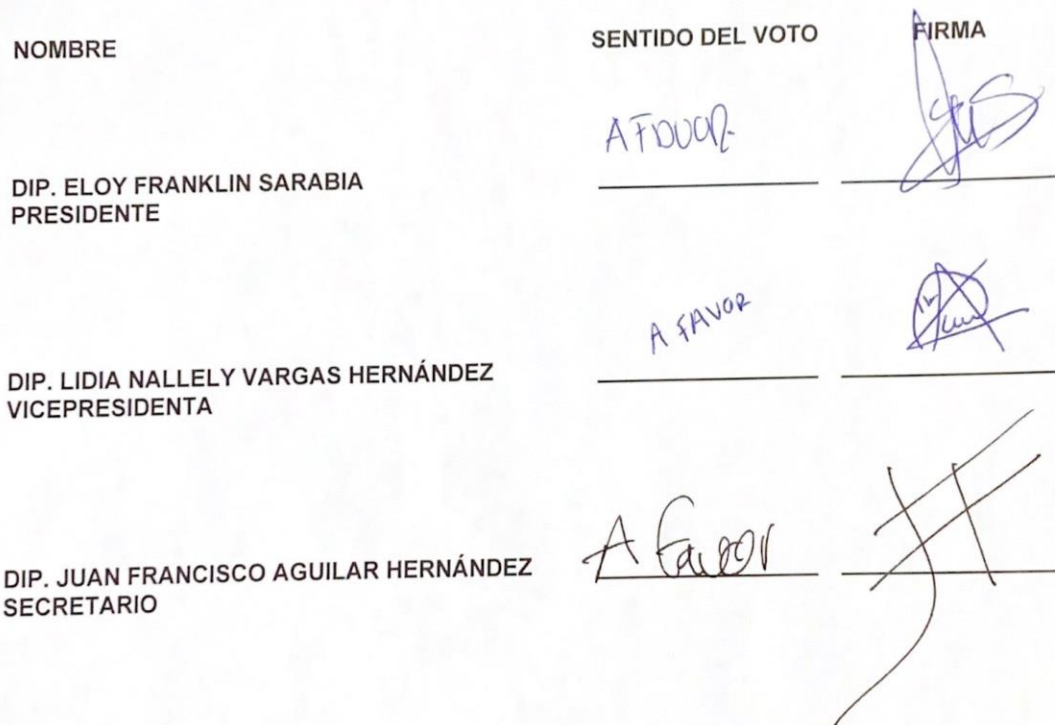 NOMBRE SENTIDO DEL VOTO FIRMA
A FAVOR
DIP. ELOY FRANKLIN SARABIA
PRESIDENTE
A FAVOR
DIP. LIDIA NALLELY VARGAS HERNÁNDEZ
VICEPRESIDENTA
A Favor
DIP. JUAN FRANCISCO AGUILAR HERNÁNDEZ
SECRETARIO